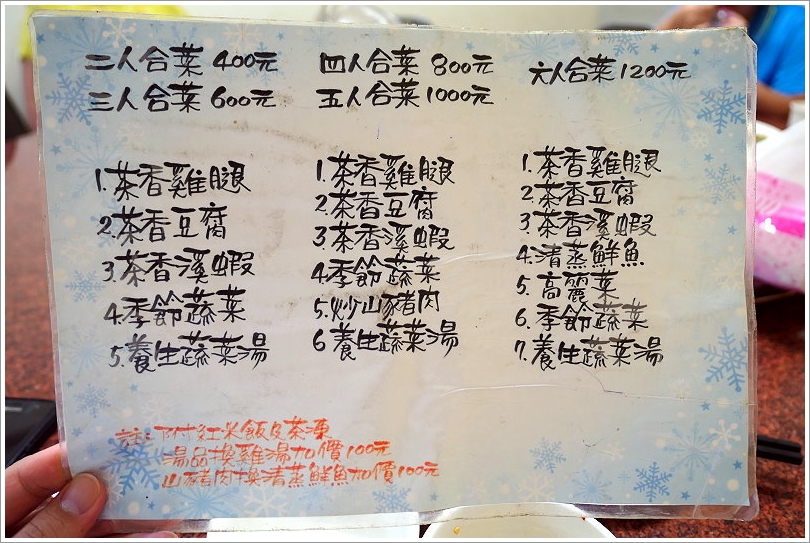 二人合菜 400元
三人合菜 600元
1.茶香雞腿
2.茶香豆腐
3.茶香溪蝦
4.季節蔬菜
5.養生蔬菜湯
四人合菜 800元
五人合菜 1000元
1.茶香雞腿
2.茶香豆腐
3.茶香溪蝦
4.季節蔬菜
5.炒山豬肉
6.養生蔬菜湯
六人合菜 1200元
1.茶香雞腿
2.茶香豆腐
3.茶香溪蝦
4.清蒸鮮魚
5.高麗菜
6.季節蔬菜
7.養生蔬菜湯
註:附紅米飯及茶凍
湯品換雞湯加價100元
山豬肉換清蒸鮮魚加價100元